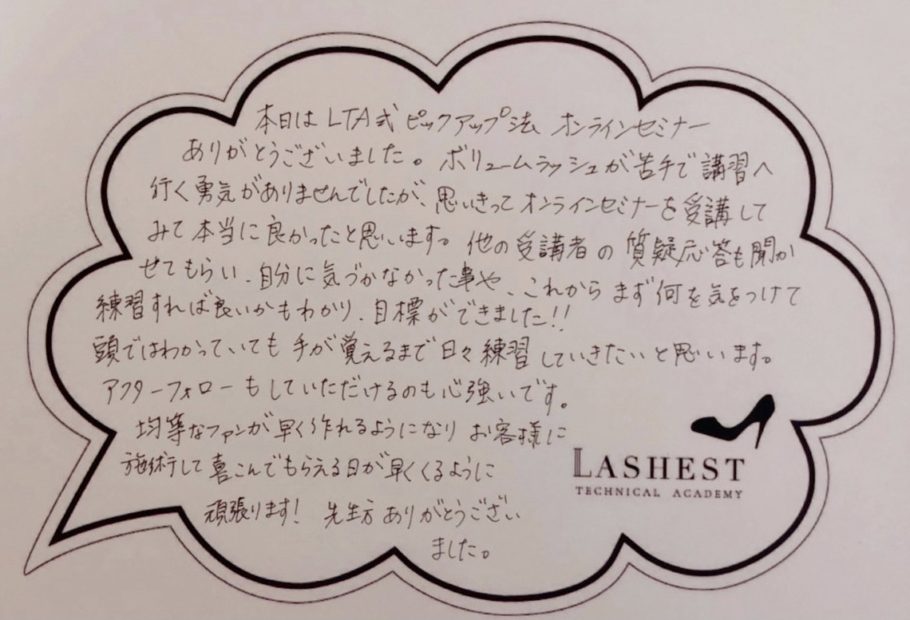 本日は LTA式 ピックアップ法 オンラインセミナー
ありがとうございました。ボリュームラッシュが苦手で講習へ
行く勇気がありませんでしたが、思いきってオンラインセミナーを受講して
みて本当に良かったと思います。他の受講者の質疑応答も聞か
せてもらい、自分に気づかなかった事や、これからまず何を気をつけて
練習すれば良いかもわかり、目標ができました!!
頭ではわかっていても手が覚えるまで日々練習していきたいと思います。
アフターフォローもしていただけるのも心強いです。
均等なファンが早く作れるようになり お客様に
施術して喜こんでもらえる日が早くくるように
頑張ります! 先生方ありがとうござい
ました。
LASHEST
TECHNICAL ACADEMY